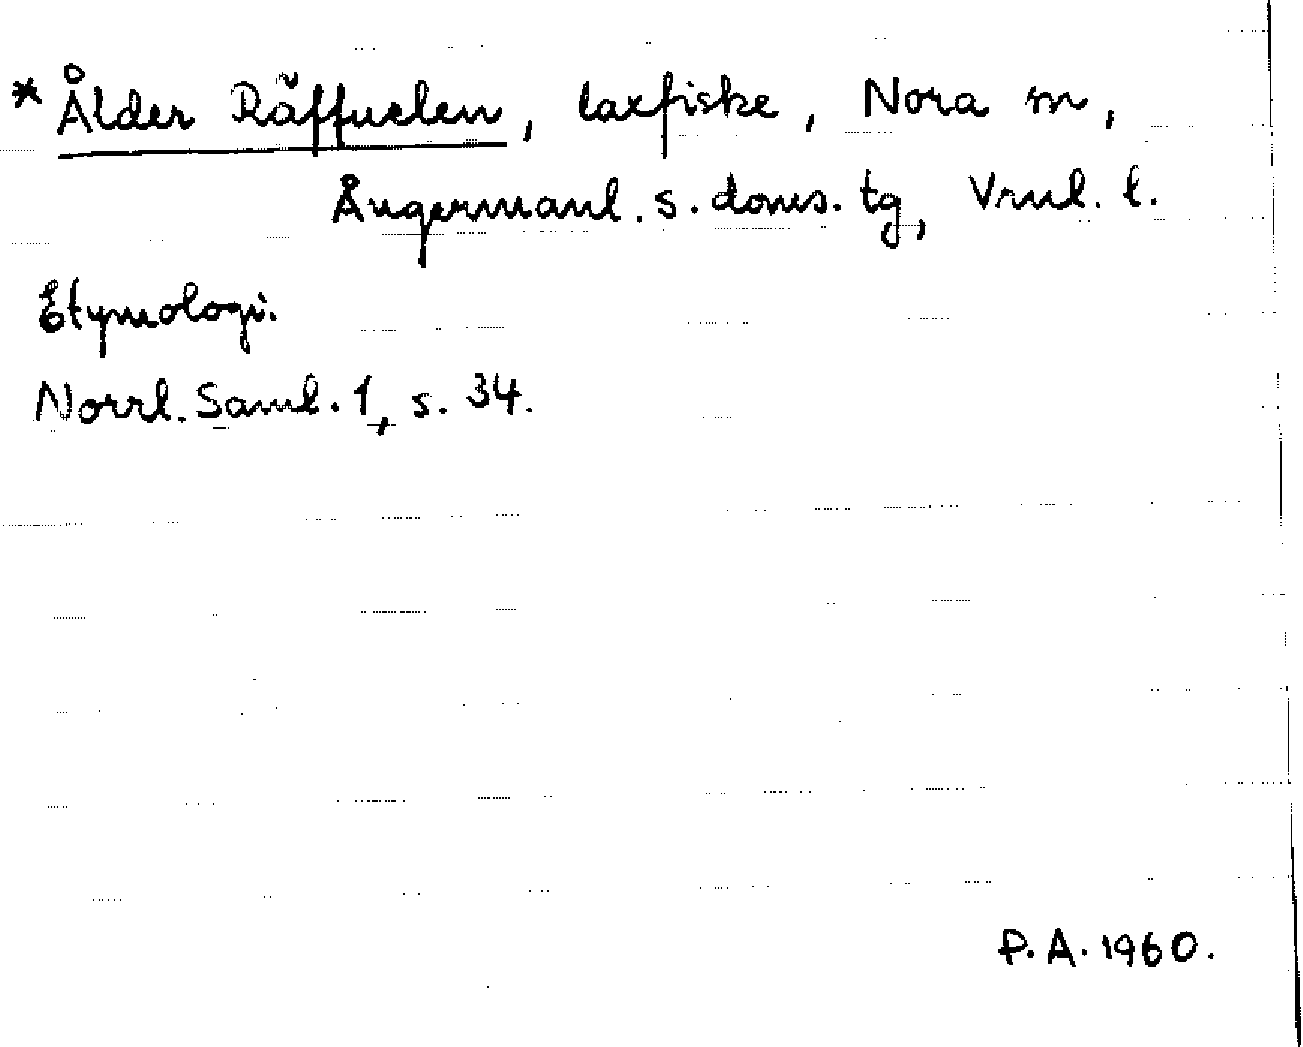 * Ålder Räffuelen, laxfiske, Nora sn,
Ångermanl. s. doms. tg, Vrnl. l.
Etymologi.
Norrl. Saml. 1, s. 34.
P. A. 1960.